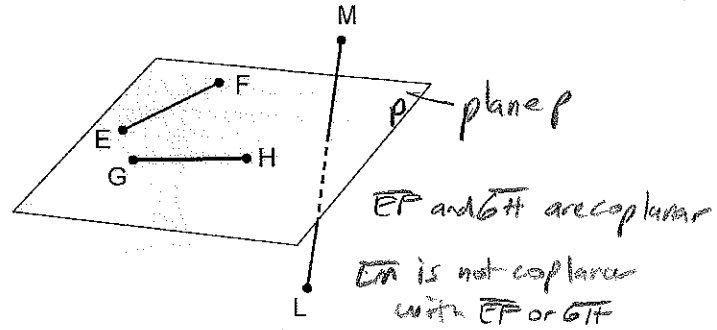 M
F
p
plane p
E
H
G
EF and GH are coplanar
LM is not coplanar
with EF or GH
L